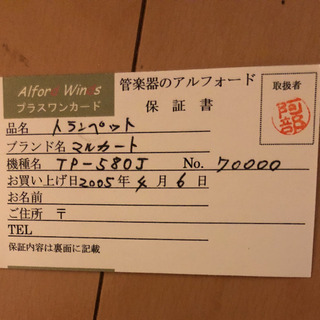 Alford Winds
プラスワンカード
管楽器のアルフォード
保証書
取扱者
阿部
品名 トランペット
ブランド名 マルカート
機種名 TP-580J No. 70000
お買い上げ日 2005年 4月 6日
お名前
ご住所 〒
TEL
保証内容は裏面に記載